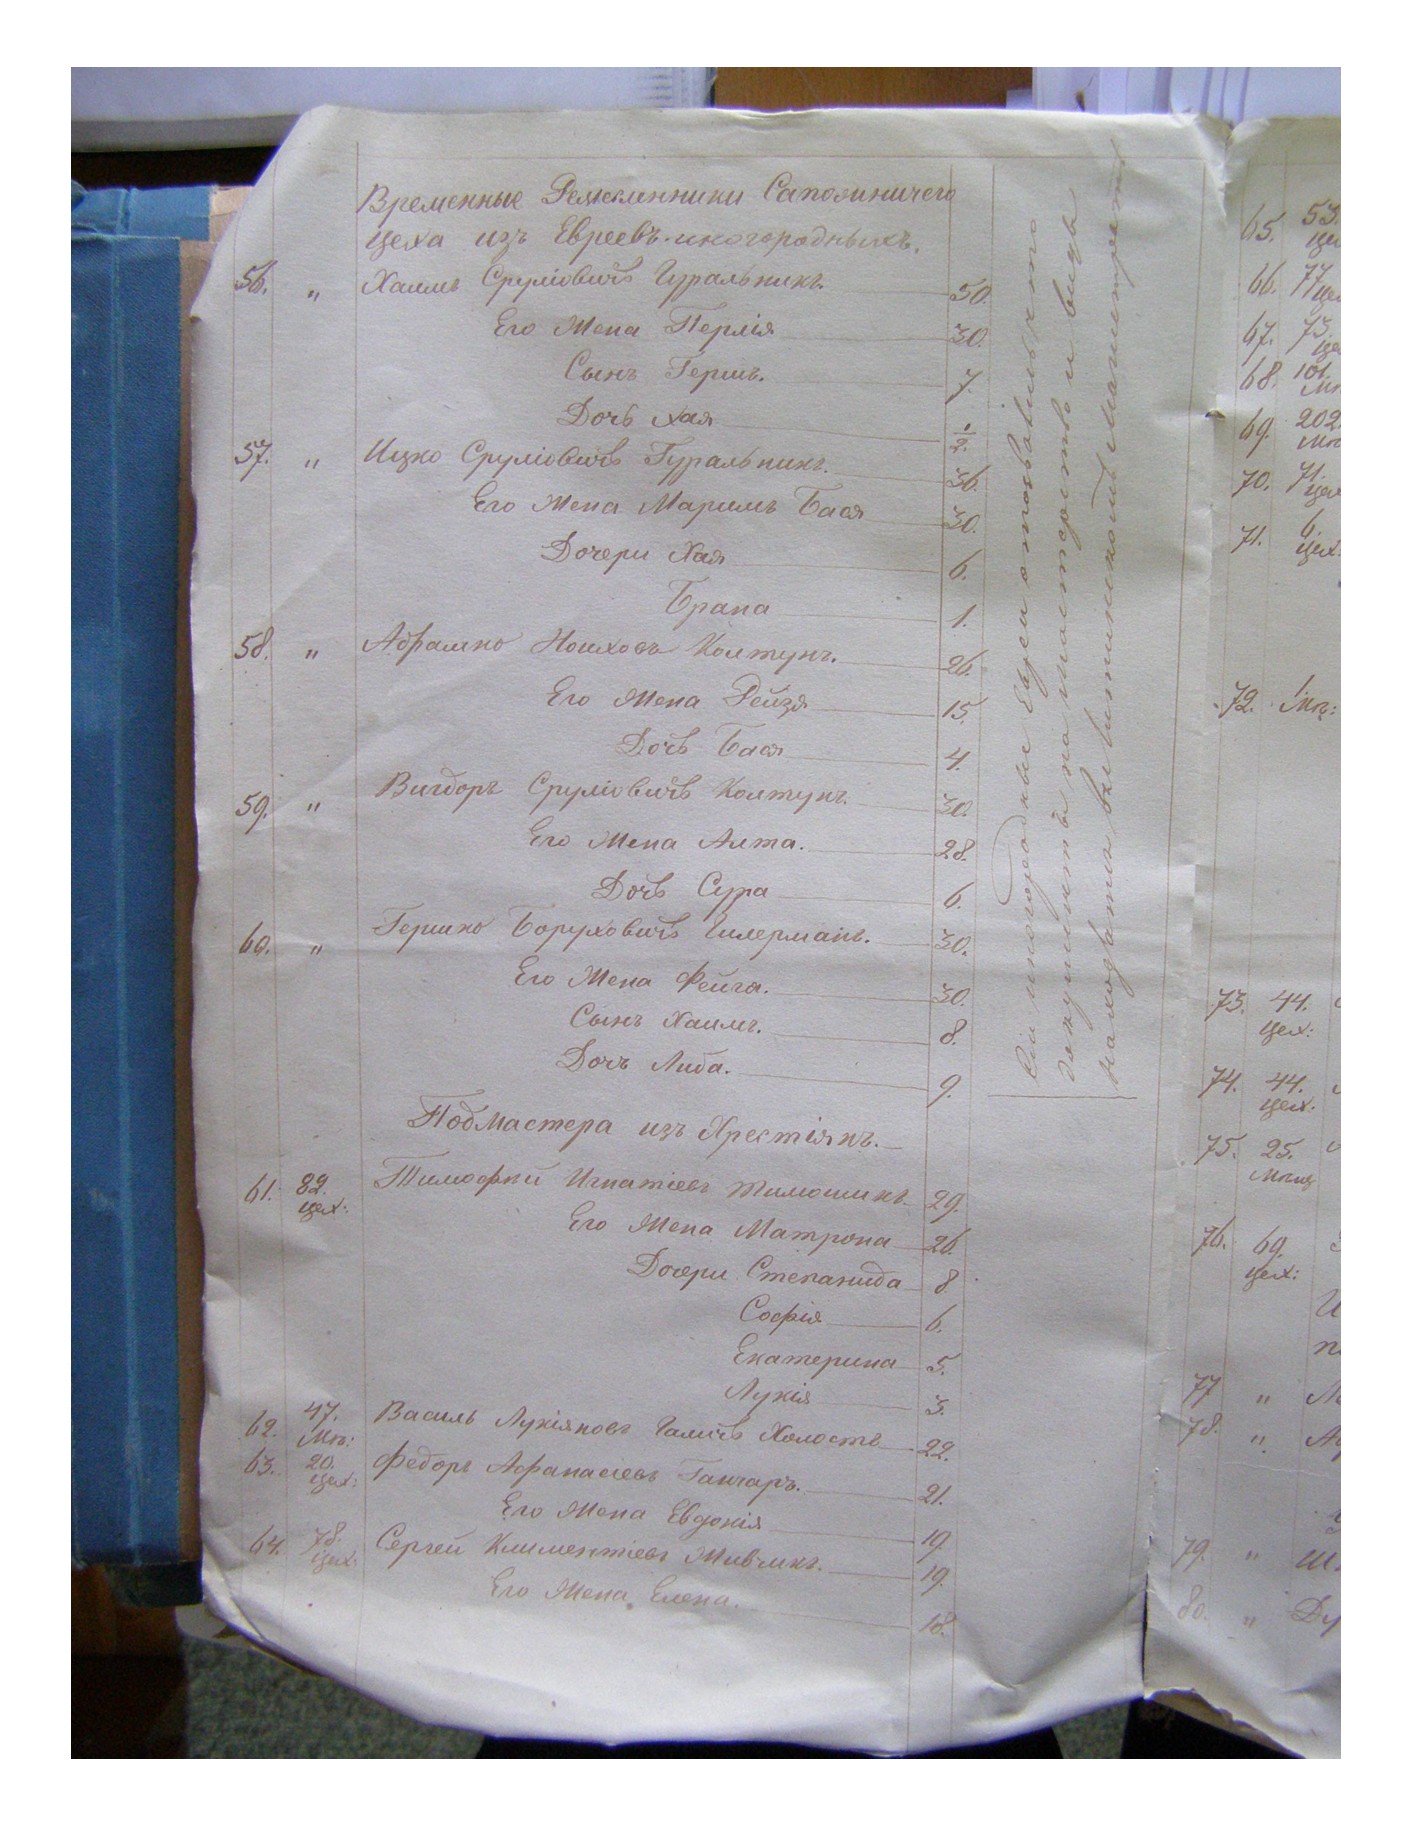 Временные Ремесленники Сапожничего
цеха изъ Евреевъ иногородныхъ.
56. " Хаимъ Сруліовичъ Гуральникъ. 50.
Его Жена Перлія 30.
Сынъ Гершъ. 7.
Дочь Хая 1/2.
57. " Ицко Сруліовичъ Гуральникъ. 36.
Его Жена Маримъ Бася 30.
Дочери Хая 6.
Брана 1.
58. " Абрамко Ноиховъ Колтунъ. 26.
Его Жена Рейзя 15.
Дочь Бася 4.
59. " Вигдоръ Сруліовичъ Колтунъ. 30.
Его Жена Алта. 28.
Дочь Сура 6.
60. " Гершко Боруховичъ Гилерманъ. 30.
Его Жена Фейга. 30.
Сынъ Хаимъ. 8.
Дочь Либа. 9.
Подмастера изъ Хрестіянъ.
61. 82. цех: Тимофей Игнатіевъ Тимошикъ 29.
Его Жена Матрона 26.
Дочери Степанида 8.
Софія 6.
Екатерина 5.
Лукія 3.
62. 47. Мѣ: Василь Лукіяновъ Галичъ Холостъ 22.
63. 20. цех: Федоръ Афанасіевъ Ганчаръ. 21.
Его Жена Евдокія 19.
64. 78. цех: Сергей Климентіевъ Живчикъ. 19.
Его Жена Елена. 18.
Сіи иногородные Евреи отозвались что
документы на мастерство и виды
находятся въ Житковскомъ Магистратѣ
65. 53
66. 77 цех
67. 73. це
68. 101. Мѣ
69. 202. Мѣ
70. 71. цех
71. 6. цех.
72. 1 Мѣ:
73. 44. цех:
74. 44. цех.
75. 25. Мѣщ
76. 69. цех:
77 "
78. "
79. "
80. " Ду